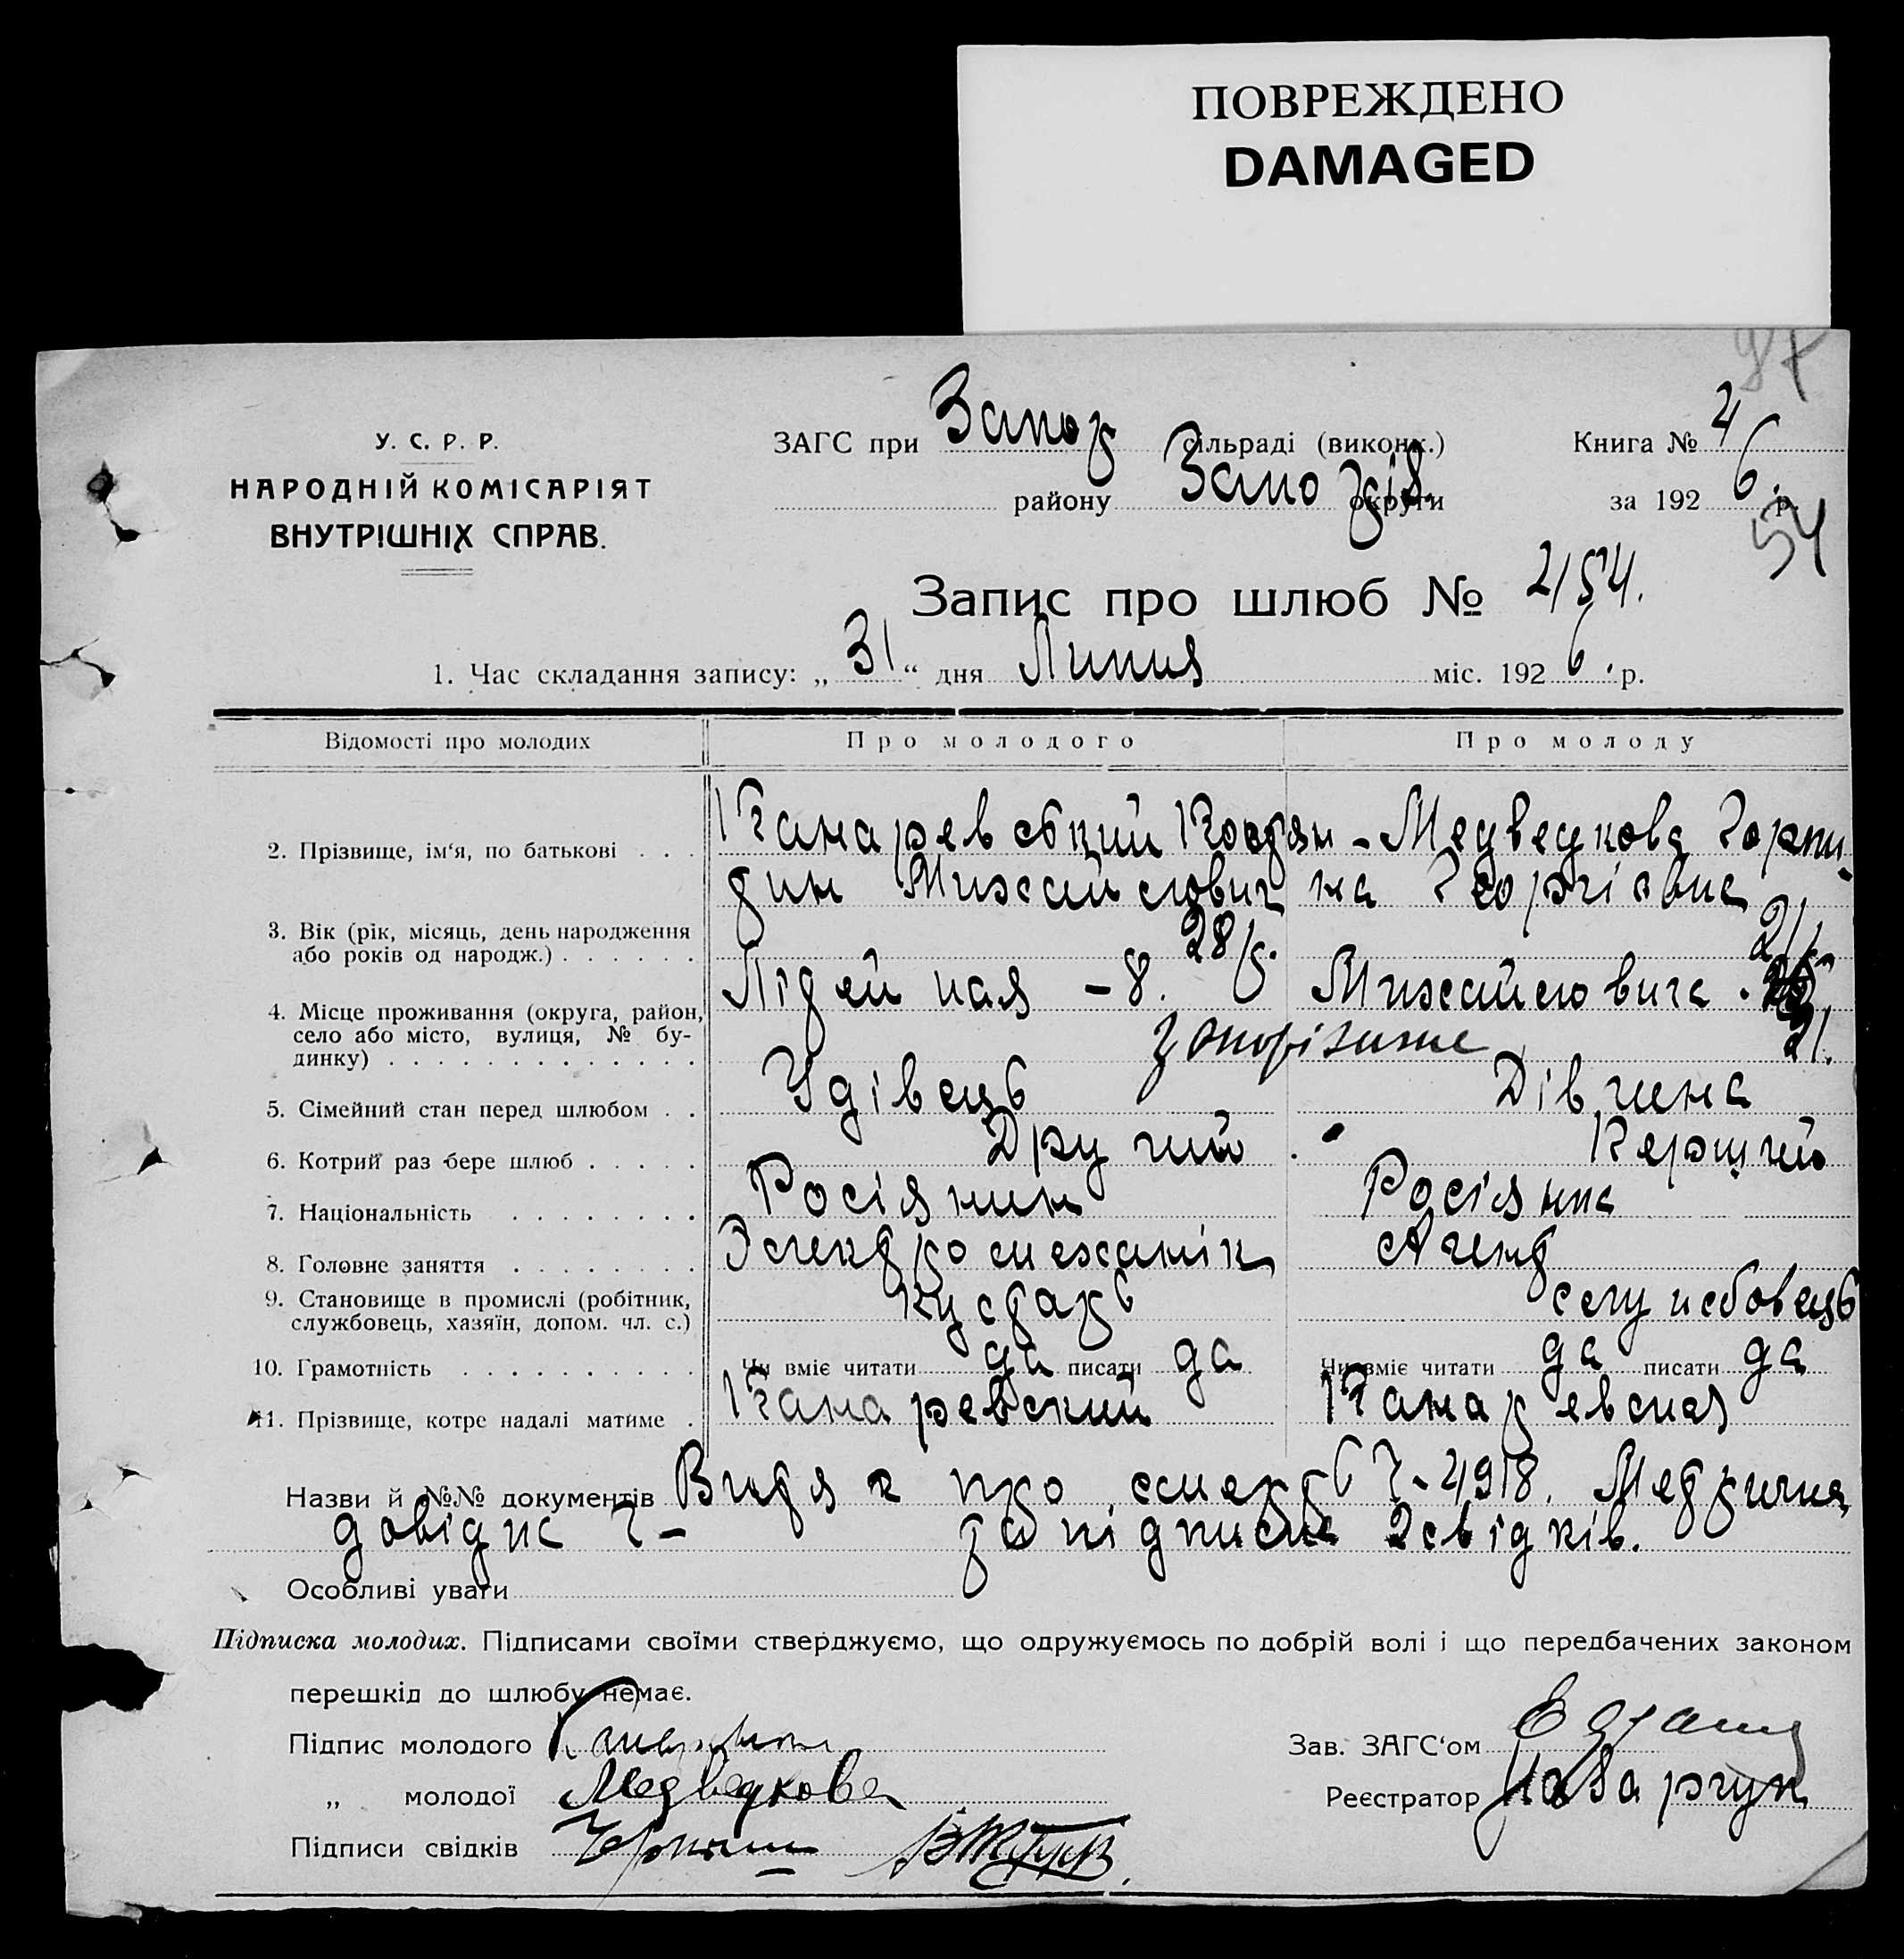 ПОВРЕЖДЕНО
DAMAGED
У. С. Р. Р.
НАРОДНІЙ КОМІСАРІЯТ
ВНУТРІШНІХ СПРАВ.
ЗАГС при Запор сільраді (виконк.)
району Запорiз. округи
Книга № 4
за 192 6. р.
54
Запис про шлюб № 2154.
1. Час складання запису: „ 31 “ дня Липня міс. 192 6. р.
Відомості про молодих Про молодого Про молоду
2. Прізвище, ім‘я, по батькові . . . Канаревський Костян- Медведкова Горпи-
тин Михайлович на Георгіевна
3. Вік (рік, місяць, день народження
або років од народж.) . . . . . . 28 р. 21 р.
4. Місце проживання (округа, район, Літейная – 8. Михайловича
село або місто, вулиця, № бу-
динку) . . . . . . . . . . . . . Запоріжжя 21.
5. Сімейний стан перед шлюбом . . Удівець Дівчина
6. Котрий раз бере шлюб . . . . . Другий Перший
7. Національність . . . . . . . . Росіянин Росіянка
8. Головне заняття . . . . . . . . Электромеханік Агент
9. Становище в промислі (робітник,
службовець, хазяїн, допом. чл. с.) Кустарь службовець
10. Грамотність . . . . . . . . . . Чи вміє читати да писати да Чи вміє читати да писати да
11. Прізвище, котре надалі матиме . Канаревский Канаревская
Назви й №№ документів Витяг про смерть Ч-4918. Метрична
довідка Ч- за підписом 2 свідків.
Особливі уваги
Підписка молодих. Підписами своїми стверджуємо, що одружуємось по добрій волі і що передбачених законом
перешкід до шлюбу немає.
Підпис молодого
Зав. ЗАГС‘ом
„ молодої Медведкова
Реєстратор
Підписи свідків